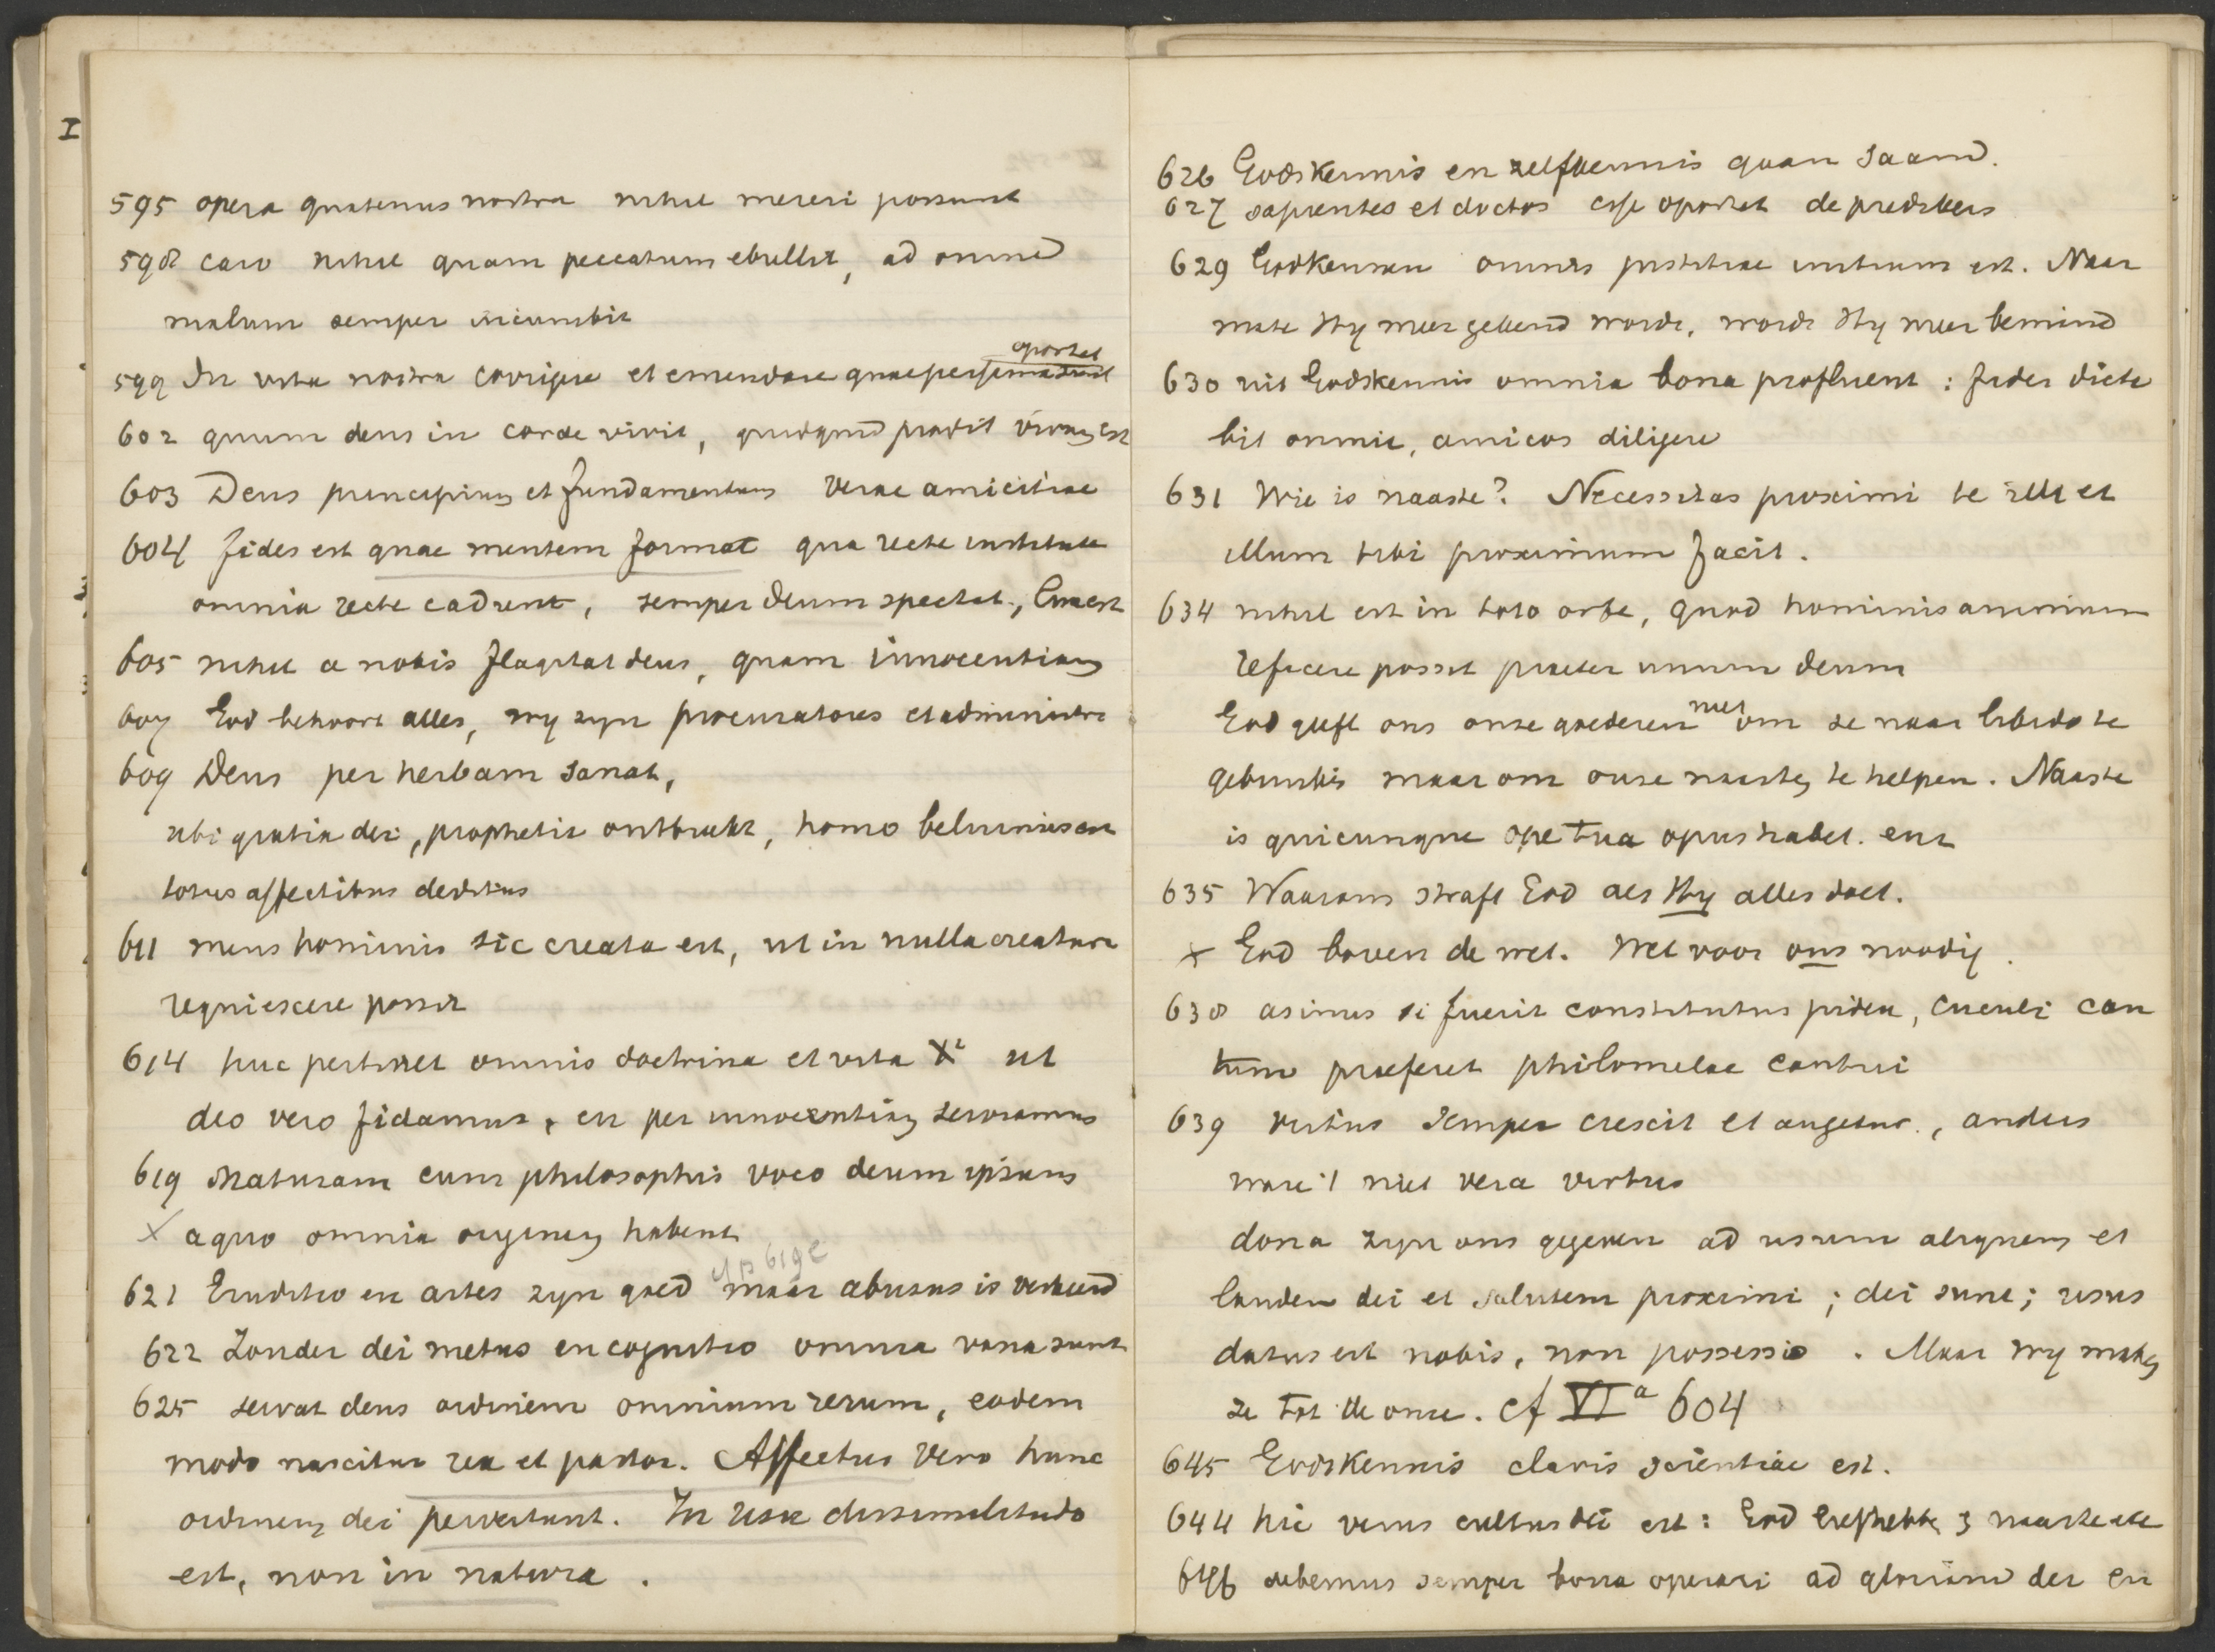 I
595 opera quatenus nostra nihil mereri possunt
598 caro nihil quam peccatum ebullit, ad omne
malum semper incumbit
oportet
599 In vita nostra corrigere et emendare quae
602 quum deus in corde vivit, quidquid prodit vivum est
603 Deus principium et fundamentum verae amicitiae
604 fides est quae mentem format qua recte instituta
omnia recte cadunt, semper deum spectat,
605 nihil a nobis flagitat deus, quam innocentiam
607 God behoort alles, wy zyn procuratores et administra
609 Deus per herbam sanat,
ubi gratia dei, prophetis ontbreekt, homo beluinus en
totus affectibus deditus
611 mens hominis sic creata est, ut in nulla creatura
requiescere possit
614 huc pertinet omnis doctrina et vita Xi ut
deo vero fidamus, en per innocentiam serviamus
619 Naturam cum philosophis voco deum ipsum
X a quo omnia originem habent
cf p 619e
621 Eruditio en artes zyn goed maar abusus is verkeerd
622 Zonder dei metus en cognitio omnia vana sunt
625 servat deus ordinem omnium rerum, eodem
modo nascitur rex et pastor. Affectus vero hunc
ordinem dei pervertunt. In usu dissimilitudo
est, non in natura.
626 Godskennis en zelfkennis gaan saam.
627 sapientes et doctos esse oportet de predikers
629 Godkennen omnis justitiae initium est. Naar
mate Hy meer gekend wordt, wordt Hy meer bemind
630 uit Godskennis omnia bona profluent: fides dicta
bit omnia, amicos diligere
631 Wie is naaste? Necessitas proximi te illi et
illum tibi proximum facit.
634 nihil est in toto orbe, quod hominis animum
reficere possit praeter unum deum
niet
God geeft ons onze goederen om ze naar libido te
gebruiken maar om onze naasten te helpen. Naaste
is quicunque ope tua opus habet.
635 Waarom straft God als Hy alles doet.
X God boven de wet. Wet voor ons noodig.
638 asinus si fuerit constitutus judex, cuculi can
tum praeferet philomelae cantui
639 virtus semper crescit et augetur, anders
ware 't niet vera virtus
dona zyn ons gegeven ad usum aliquem et
laudem dei et salutem proximi; dei sunt; usus
datus est nobis, non possessio. Maar wy maken
ze tot de onze. cf VIa 604
645 Godskennis clavis scientiae est.
644 hic verus cultus dei est: God liefhebben
646 debemus semper bona operari ad gloriam dei en